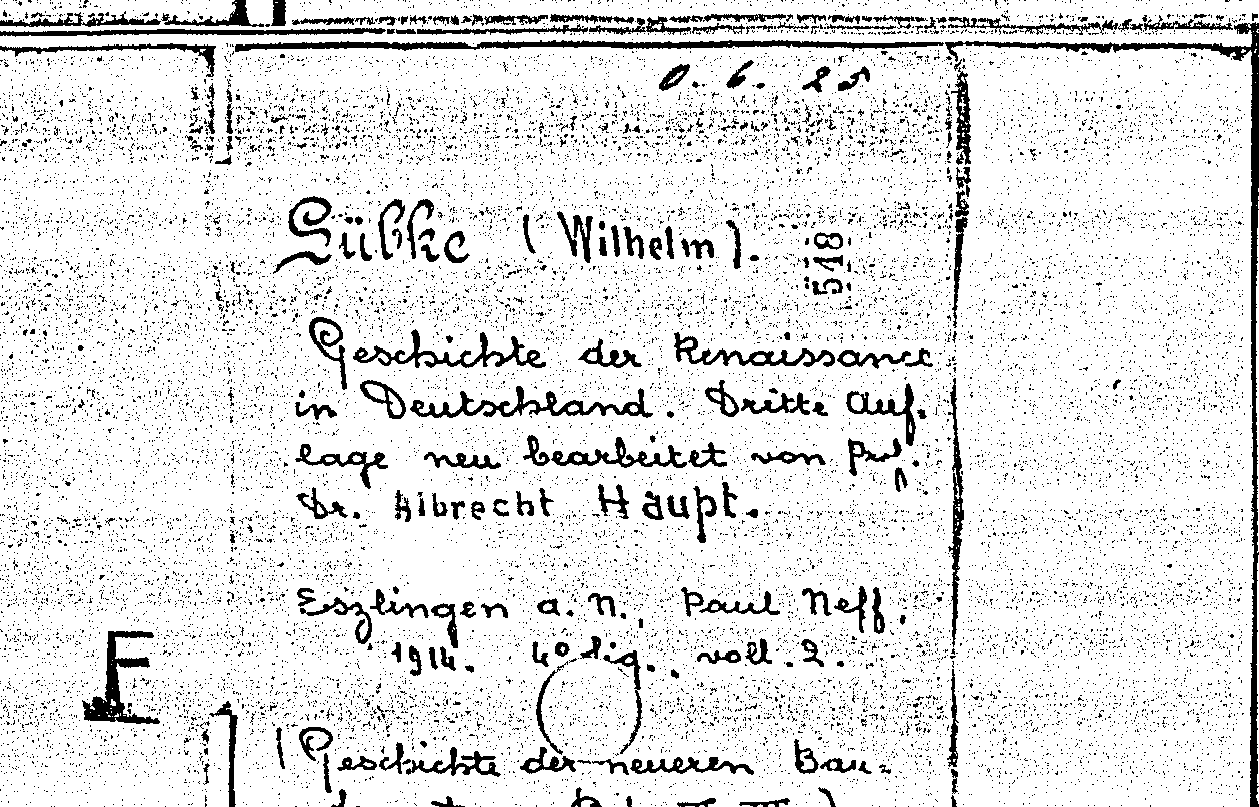 O. 6. 25
Lübke (Wilhelm).
548
Geschichte der Renaissance
in Deutschland. Dritte Auf-
lage neu bearbeitet von Prof.
Dr. Albrecht Haupt.
Eszlingen a. N., Paul Neff.
1914. 4º fig., voll. 2.
F
(Geschichte der neueren Bau-